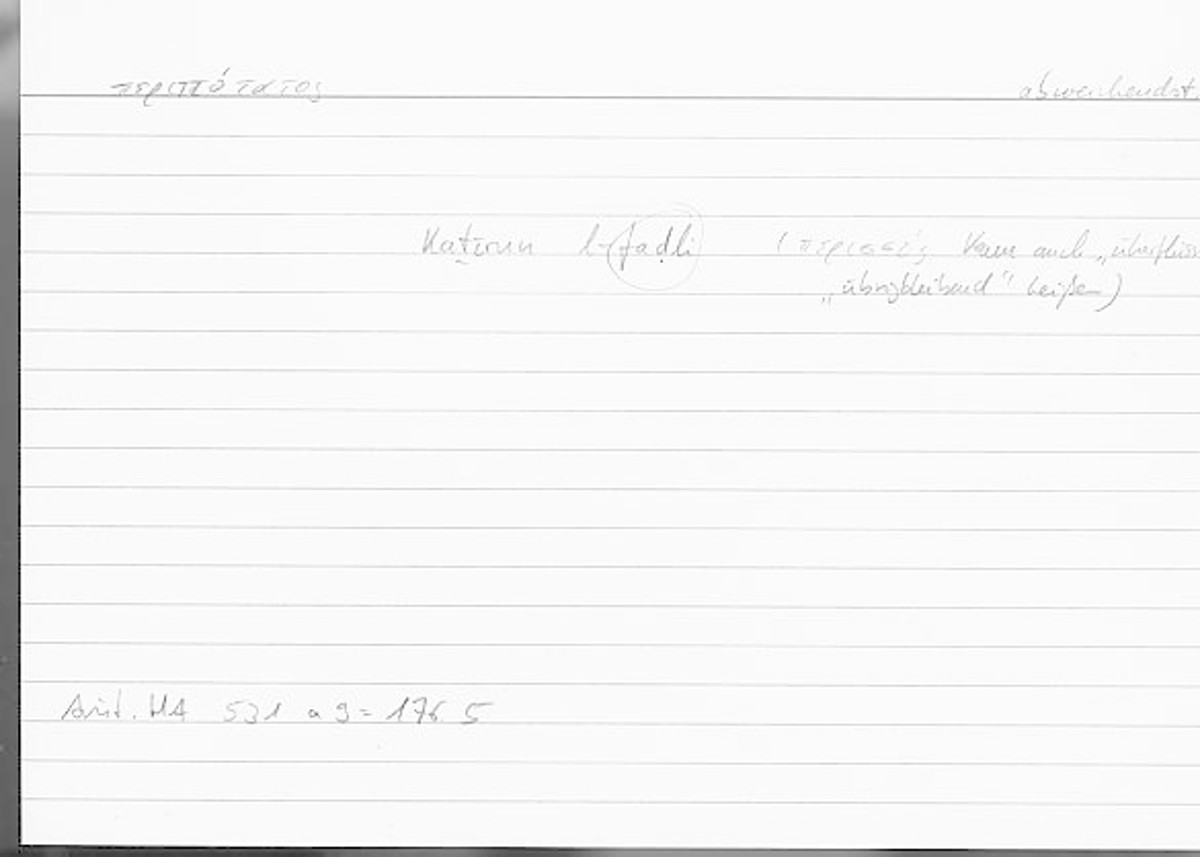 περιττότατος abweichendst.
Kaṯīrun l-faḍli (περισσός kann auch „überflüss
„übrigbleibend“ heißen)
Arist. HA 531 a 9 = 176 5